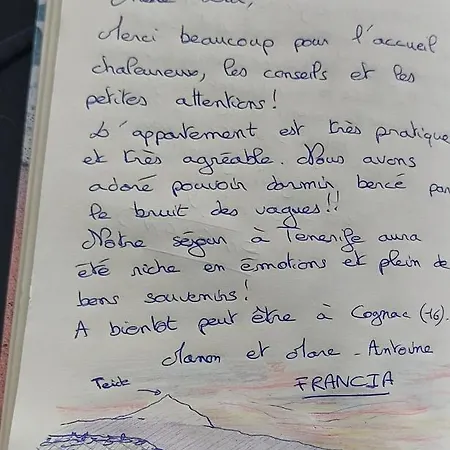 Merci beaucoup pour l'accueil
chaleureux, les conseils et les
petites attentions!
L'appartement est très pratique
et très agréable. Nous avons
adoré pouvoir dormir bercé par
le bruit des vagues!!
Notre séjour à Tenerife aura
été riche en émotions et plein de
bons souvenirs!
A bientot peut être à Cognac (16).
Manon et Marc-Antoine
FRANCIA
Teide